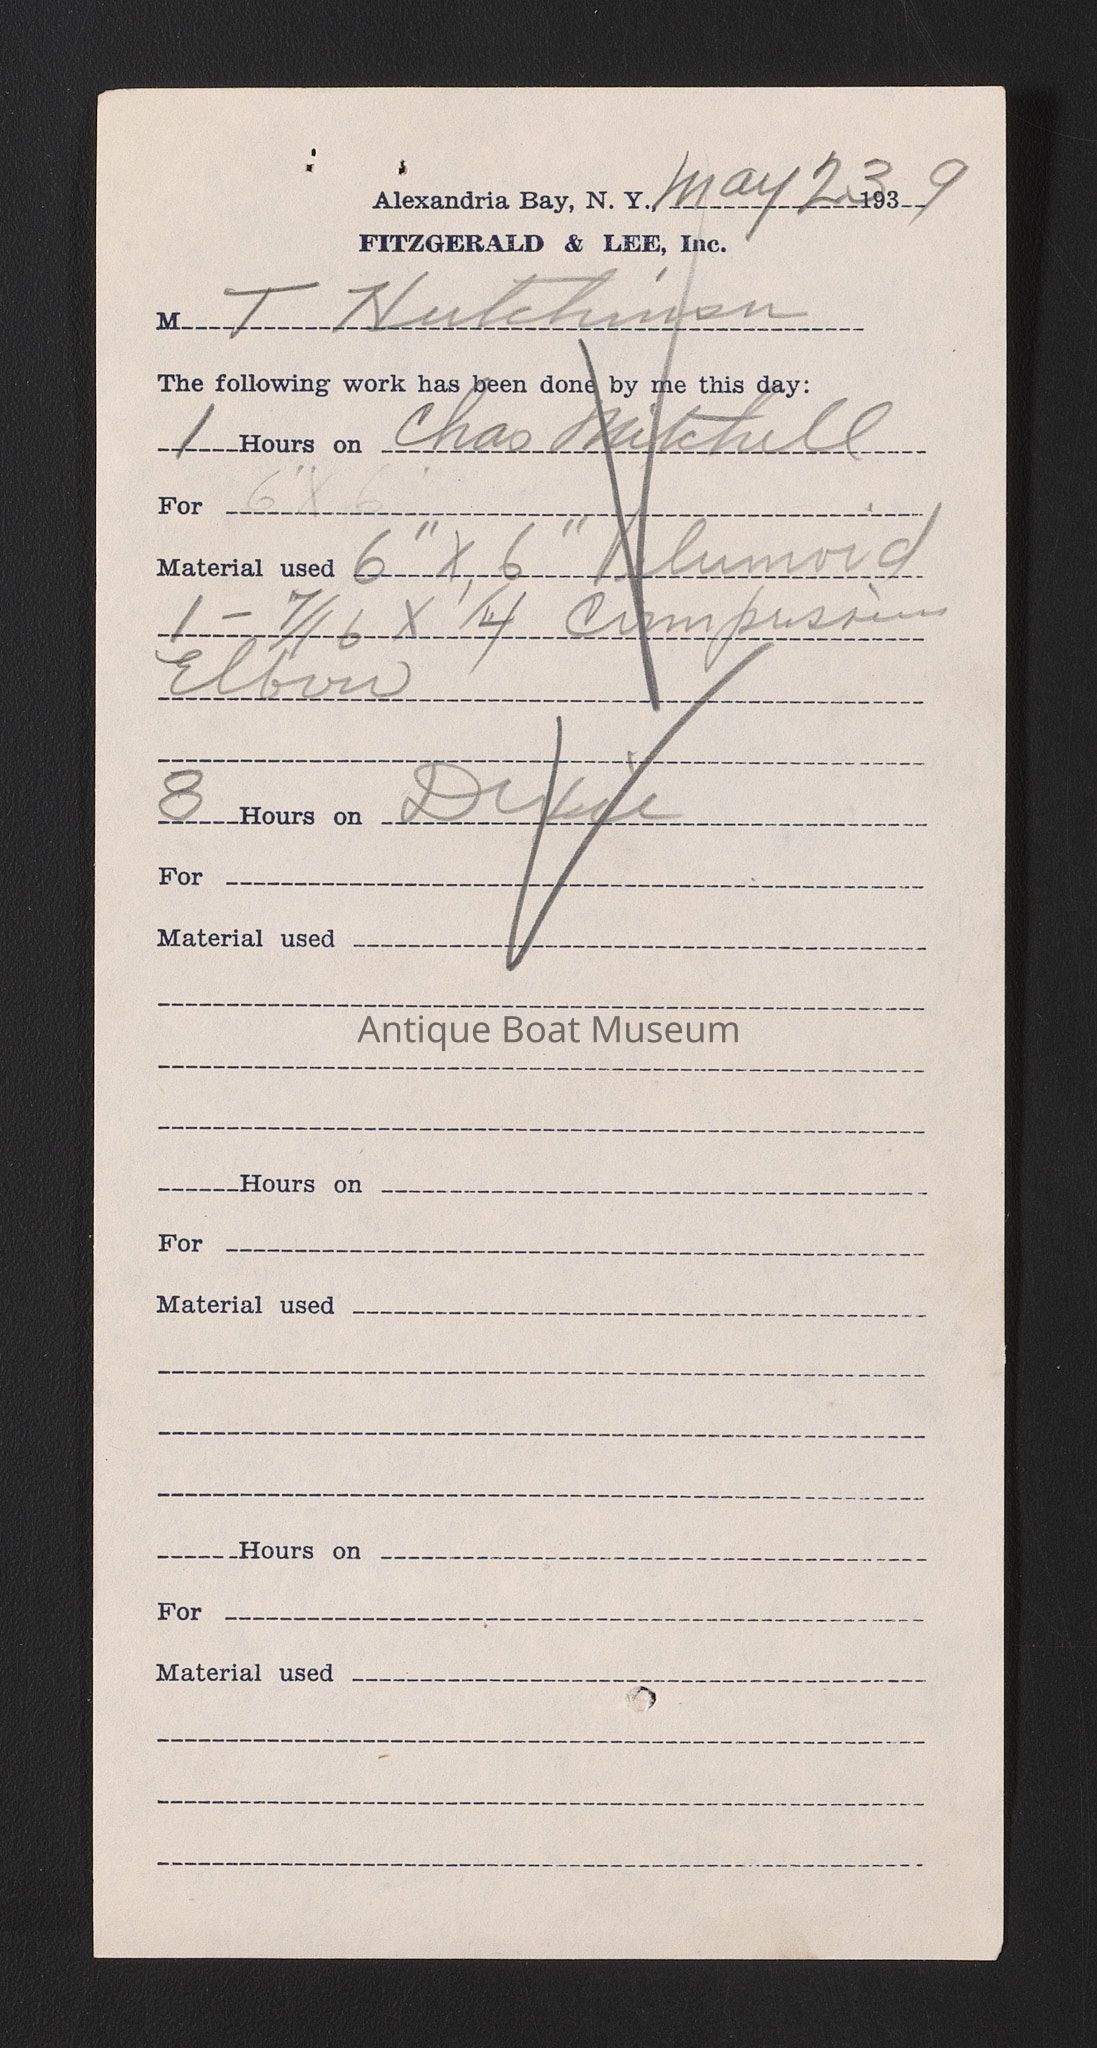 Alexandria Bay, N. Y., May 23 1939
FITZGERALD & LEE, Inc.
M T Hutchinson
The following work has been done by me this day:
1 Hours on Chas Mitchell
For 6" X 6"
Material used 6" X 6"
1 - 7/16 X 1/4 Compression
Elbow
8 Hours on Dixie
For
Material used
Antique Boat Museum
Hours on
For
Material used
Hours on
For
Material used